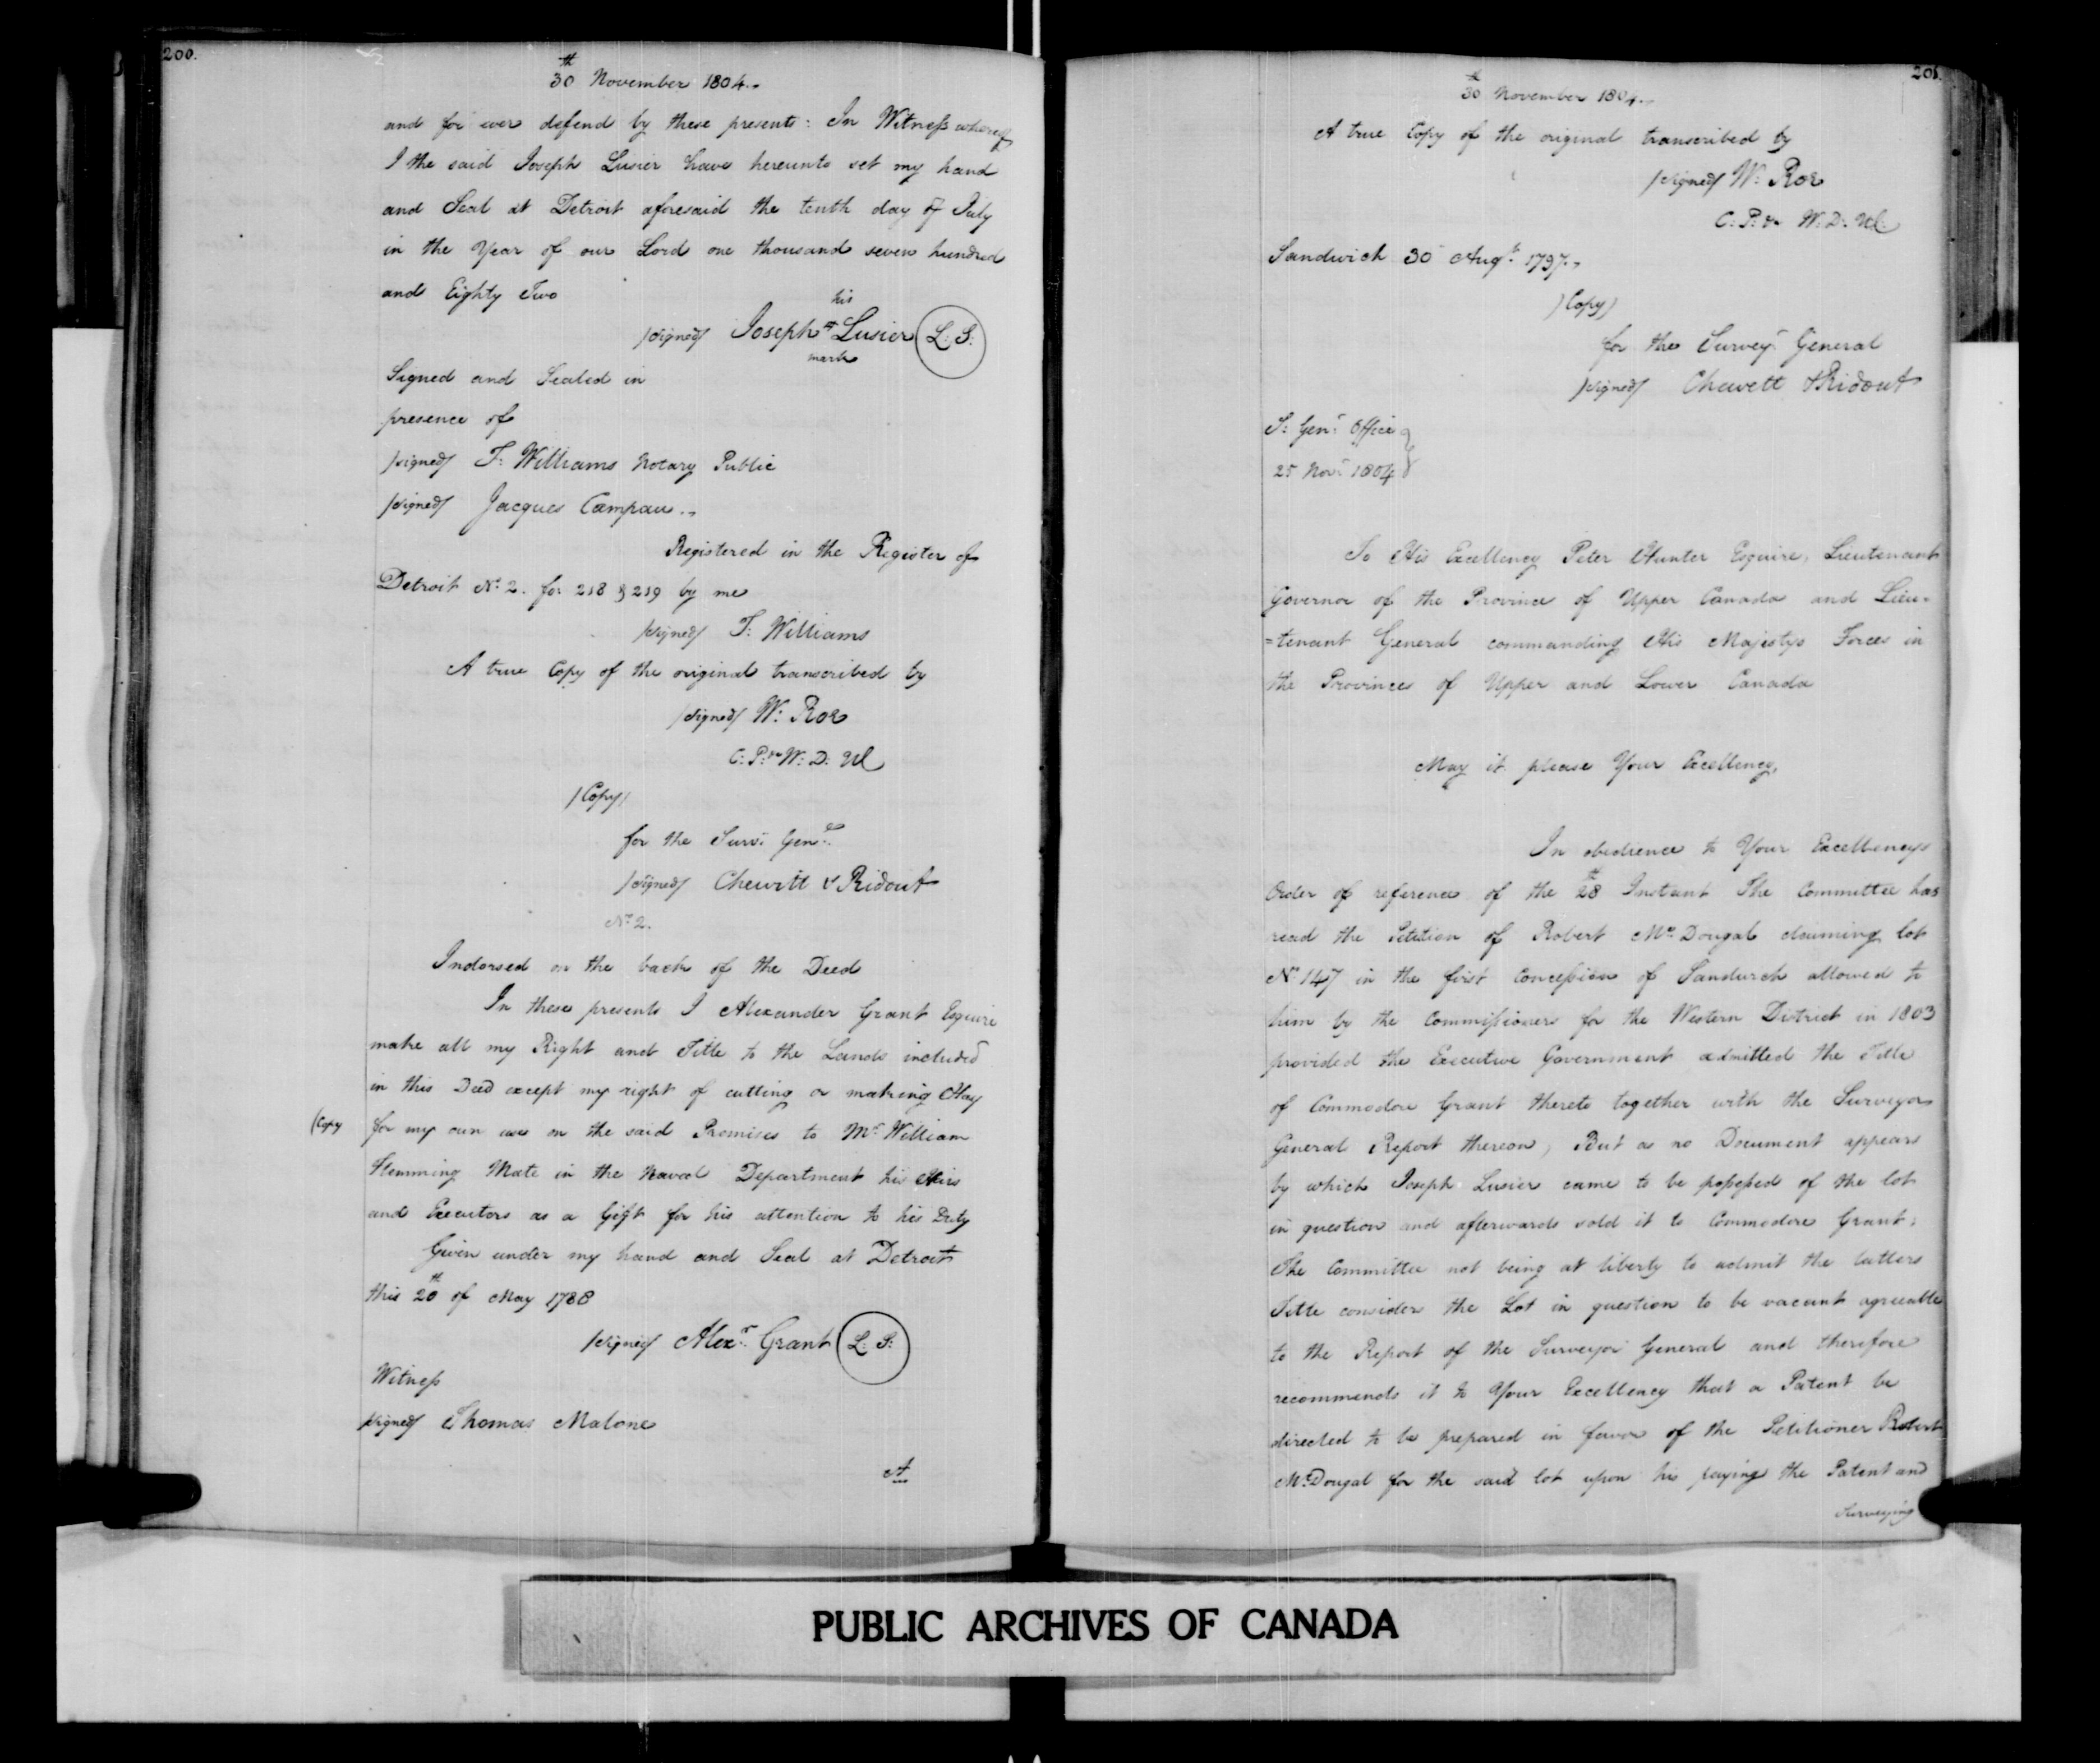 200.
30th November 1804.
and for ever defend by these presents: In Witness whereof
I the said Joseph Lusier have hereunto set my hand
and Seal at Detroit aforesaid the tenth day of July
in the Year of our Lord one thousand seven hundred
and Eighty Two
his
/signed/ Joseph + Lusier L: S:
mark
Signed and Sealed in
presence of
/signed/ T: Williams Notary Public
/signed/ Jacques Campau..
Registered in the Register of
Detroit No. 2. fo: 218 & 219 by me
/signed/ T: Williams
A true Copy of the original transcribed by
/signed/ W: Roe
C: P: W: D:
/Copy/
for the Surv: Genl:
/signed/ Chewitt & Ridout
No 2.
Indorsed on the back of the Deed
In these presents I Alexander Grant Esquire
make all my Right and Title to the Lands included
in this Deed except my right of cutting or making Hay
(Copy for my own use on the said Premises to Mr William
Flemming Mate in the Naval Department his Heirs
and Executors as a Gift for his attention to his Duty
Given under my hand and Seal at Detroit
this 20th of May 1788
/signed/ Alexr: Grant L: S:
Witness
/signed/ Thomas Malone
A
201.
30th November 1804.
A true Copy of the original transcribed by
/signed/ W: Roe
C: P: W: D:
Sandwich 30 Augt: 1797.
/Copy/
for the Survey: General
/signed/ Chewett & Ridout
S: Genl: Office
25 Nov: 1804
To His Excellency Peter Hunter Esquire, Lieutenant
Governor of the Province of Upper Canada and Lieu-
=tenant General commanding His Majestys Forces in
the Provinces of Upper and Lower Canada
May it please Your Excellency,
In obedience to Your Excellencys
Order of reference of the 28th Instant The Committee has
read the Petition of Robert Mc Dougal claiming lot
No. 147 in the first Concession of Sandwich allowed to
him by the Commissioners for the Western District in 1803
provided the Executive Government admitted the Title
of Commodore Grant thereto together with the Surveyor
General Report thereon, But as no Document appears
by which Joseph Lusier came to be possessed of the lot
in question and afterwards sold it to Commodore Grant;
The Committee not being at liberty to admit the latters
Title consider the Lot in question to be vacant agreeable
to the Report of the Surveyor General and therefore
recommends it to Your Excellency that a Patent be
directed to be prepared in favor of the Petitioner Robert
McDougal for the said lot upon his paying the Patent and
Surveying
PUBLIC ARCHIVES OF CANADA